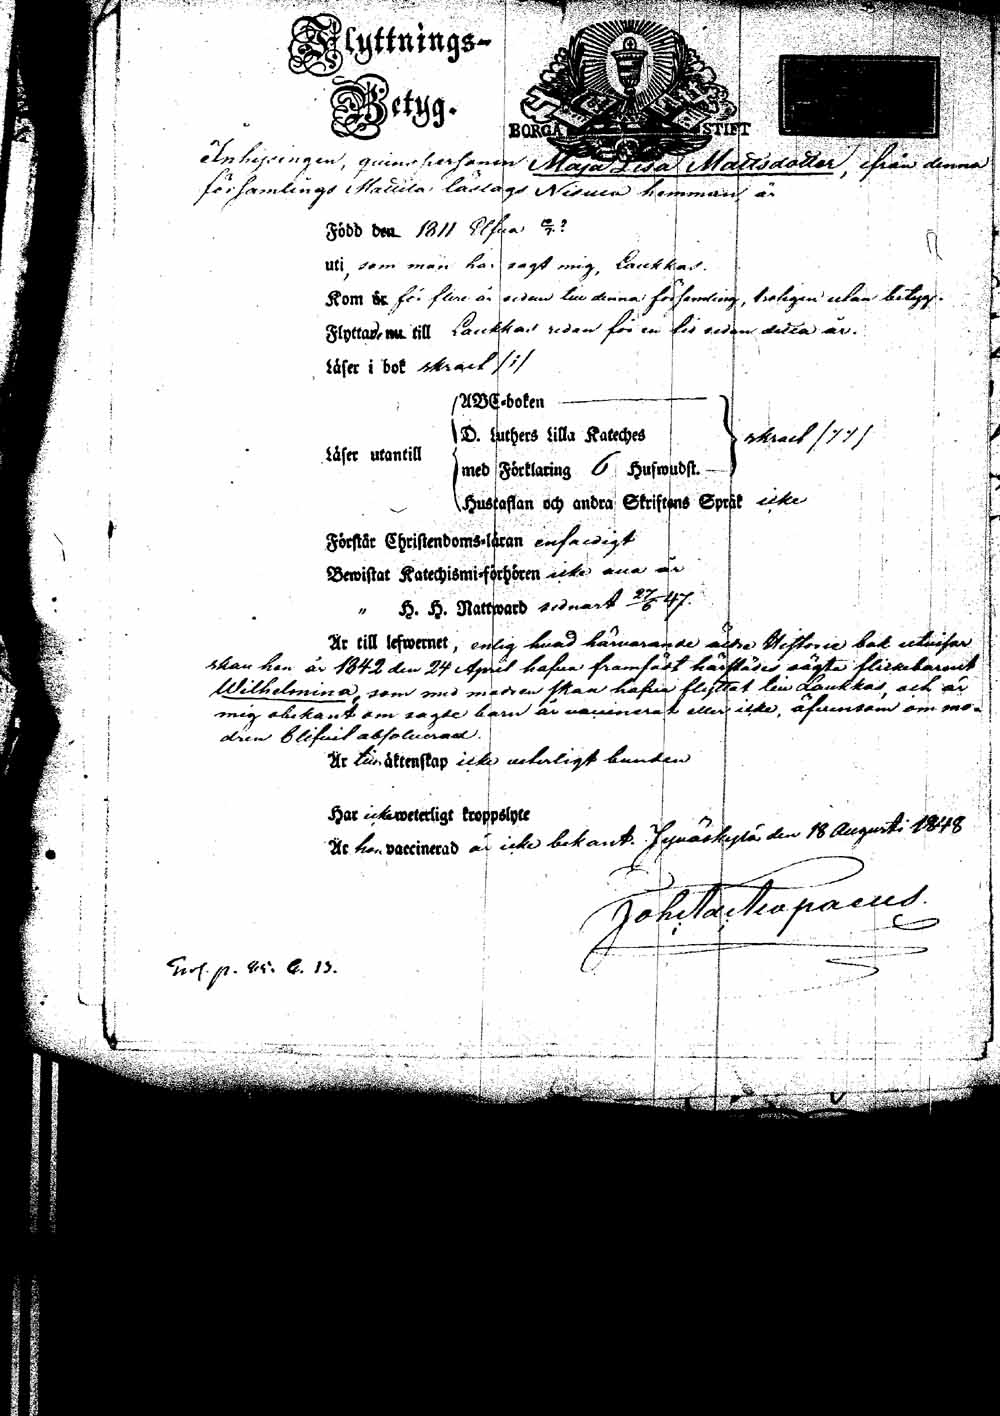 Flyttnings-
Betyg.
BORGÅ STIFT
Inhysingen, qvinspersonen Maja Lisa Mattsdotter, ifrån denna
församlings Mattila lästags hemman är
Född den 1811
uti, som man har sagt mig, Laukkas.
Kom år för flere år sedan till denna församling, troligen utan betyg.
Flyttar nu till Laukkas redan för en tid sedan detta år.
Läser i bok svach /:/
ABC-boken
D. Luthers Lilla Kateches svach /7 7/
Läser utantill
med Förklaring 6 Hufwudst.
Hustaflan och andra Skriftens Språk icke
Förstår Christendoms-läran enfaldigt
Bewistat Katechismi-förhören icke år
" H. H. Nattward sednast 27/6 47.
Är till lefwernet, enlig hvad härvarande äldre Historie bok utvisar
skall hon år 1842 den 24 April hafva framfödt härstädes oägta flickebarnet
Wilhelmina, som med modren skall hafva flyttat till Laukkas, och är
mig obekant om sagde barn är vaccinerat eller icke, äfvensom om mo-
dren blifvit absolverad.
Är till äktenskap icke veterligt bunden
Har icke weterligt kroppslyte
Är hon vaccinerad är icke bekant. Jyväskylä den 18 Augusti 1848
p. 13.